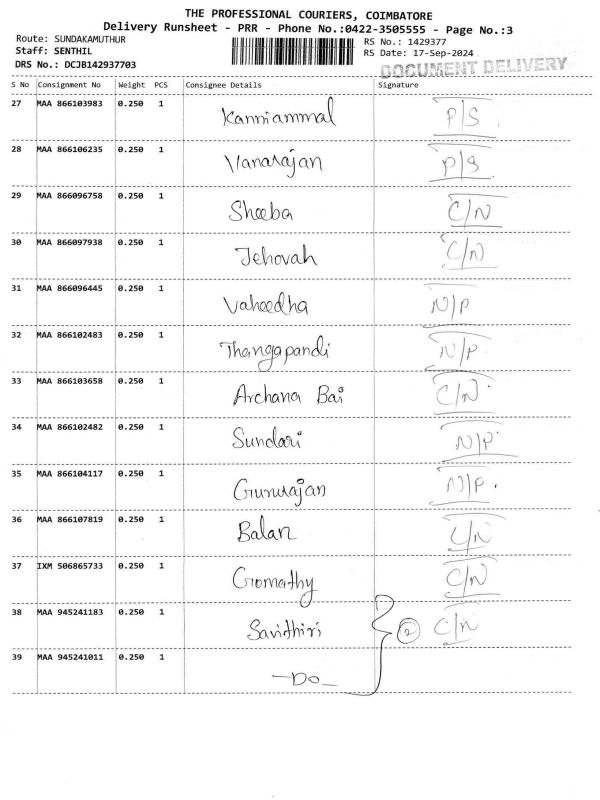 THE PROFESSIONAL COURIERS, COIMBATORE
Delivery Runsheet - PRR - Phone No.:0422-3505555 - Page No.:3
Route: SUNDAKAMUTHUR RS No.: 1429377
Staff: SENTHIL RS Date: 17-Sep-2024
DRS No.: DCJB142937703 DOCUMENT DELIVERY
S No Consignment No Weight PCS Consignee Details Signature
27 MAA 866103983 0.250 1 Kanniammal P/S
28 MAA 866106235 0.250 1 Vanarajan P/S
29 MAA 866096758 0.250 1 Sheeba C/N
30 MAA 866097938 0.250 1 Jehovah C/N
31 MAA 866096445 0.250 1 Vaheedha N/P
32 MAA 866102483 0.250 1 Thangapandi N/P
33 MAA 866103658 0.250 1 Archana Bai C/N
34 MAA 866102482 0.250 1 Sundari N/P
35 MAA 866104117 0.250 1 Gururajan N/P.
36 MAA 866107819 0.250 1 Balan C/N
37 IXM 506865733 0.250 1 Gomathy C/N
38 MAA 945241183 0.250 1 Savithiri 2 C/N
39 MAA 945241011 0.250 1 -Do-